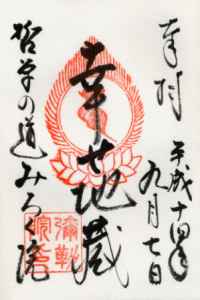 奉拝
平成十四年
九月七日
幸せ地蔵
哲学の道みろく院
彌勒
院印